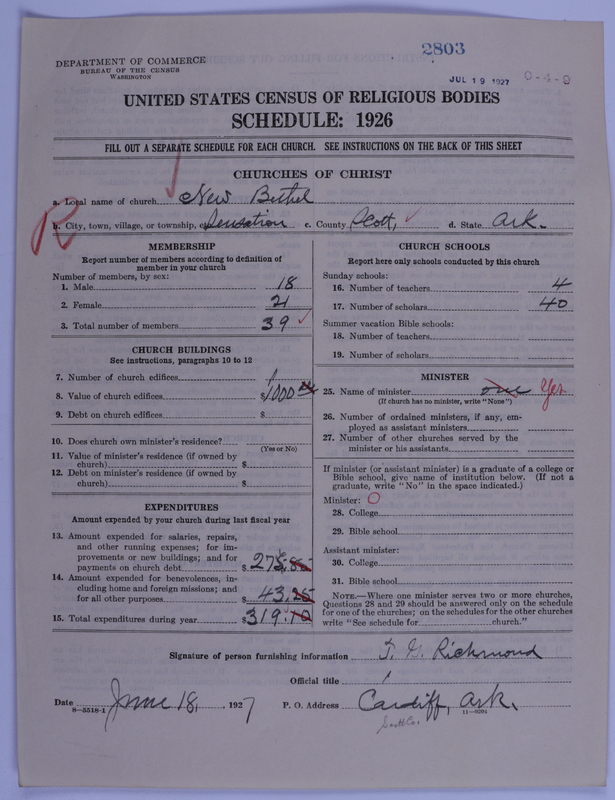 2803
DEPARTMENT OF COMMERCE
BUREAU OF THE CENSUS
WASHINGTON
JUL 19 1927 0-4-9
UNITED STATES CENSUS OF RELIGIOUS BODIES
SCHEDULE: 1926
FILL OUT A SEPARATE SCHEDULE FOR EACH CHURCH. SEE INSTRUCTIONS ON THE BACK OF THIS SHEET
CHURCHES OF CHRIST
a. Local name of church New Bethel
R
b. City, town, village, or township, c. County Scott, d. State Ark.
MEMBERSHIP
Report number of members according to definition of
member in your church
Number of members, by sex:
1. Male 18
2. Female 21
3. Total number of members 39
CHURCH BUILDINGS
See instructions, paragraphs 10 to 12
7. Number of church edifices 1
8. Value of church edifices $1000
9. Debt on church edifices $
10. Does church own minister's residence?
(Yes or No)
11. Value of minister's residence (if owned by
church) $
12. Debt on minister's residence (if owned by
church) $
EXPENDITURES
Amount expended by your church during last fiscal year
13. Amount expended for salaries, repairs,
and other running expenses; for im-
provements or new buildings; and for
payments on church debt $
14. Amount expended for benevolences, in-
cluding home and foreign missions; and
for all other purposes $43.25
15. Total expenditures during year $319.10
CHURCH SCHOOLS
Report here only schools conducted by this church
Sunday schools:
16. Number of teachers 4
17. Number of scholars 40
Summer vacation Bible schools:
18. Number of teachers
19. Number of scholars
MINISTER
25. Name of minister one Yes
(If church has no minister, write "None")
26. Number of ordained ministers, if any, em-
ployed as assistant ministers
27. Number of other churches served by the
minister or his assistants
If minister (or assistant minister) is a graduate of a college or
Bible school, give name of institution below. (If not a
graduate, write "No" in the space indicated.)
Minister: O
28. College
29. Bible school
Assistant minister:
30. College
31. Bible school
NOTE.—Where one minister serves two or more churches,
Questions 28 and 29 should be answered only on the schedule
for one of the churches; on the schedules for the other churches
write "See schedule for church."
Signature of person furnishing information Richmond
Official title
Date June 18, 1927 P. O. Address Cardiff, Ark.
8—5518-1 11—9204
Scott Co.